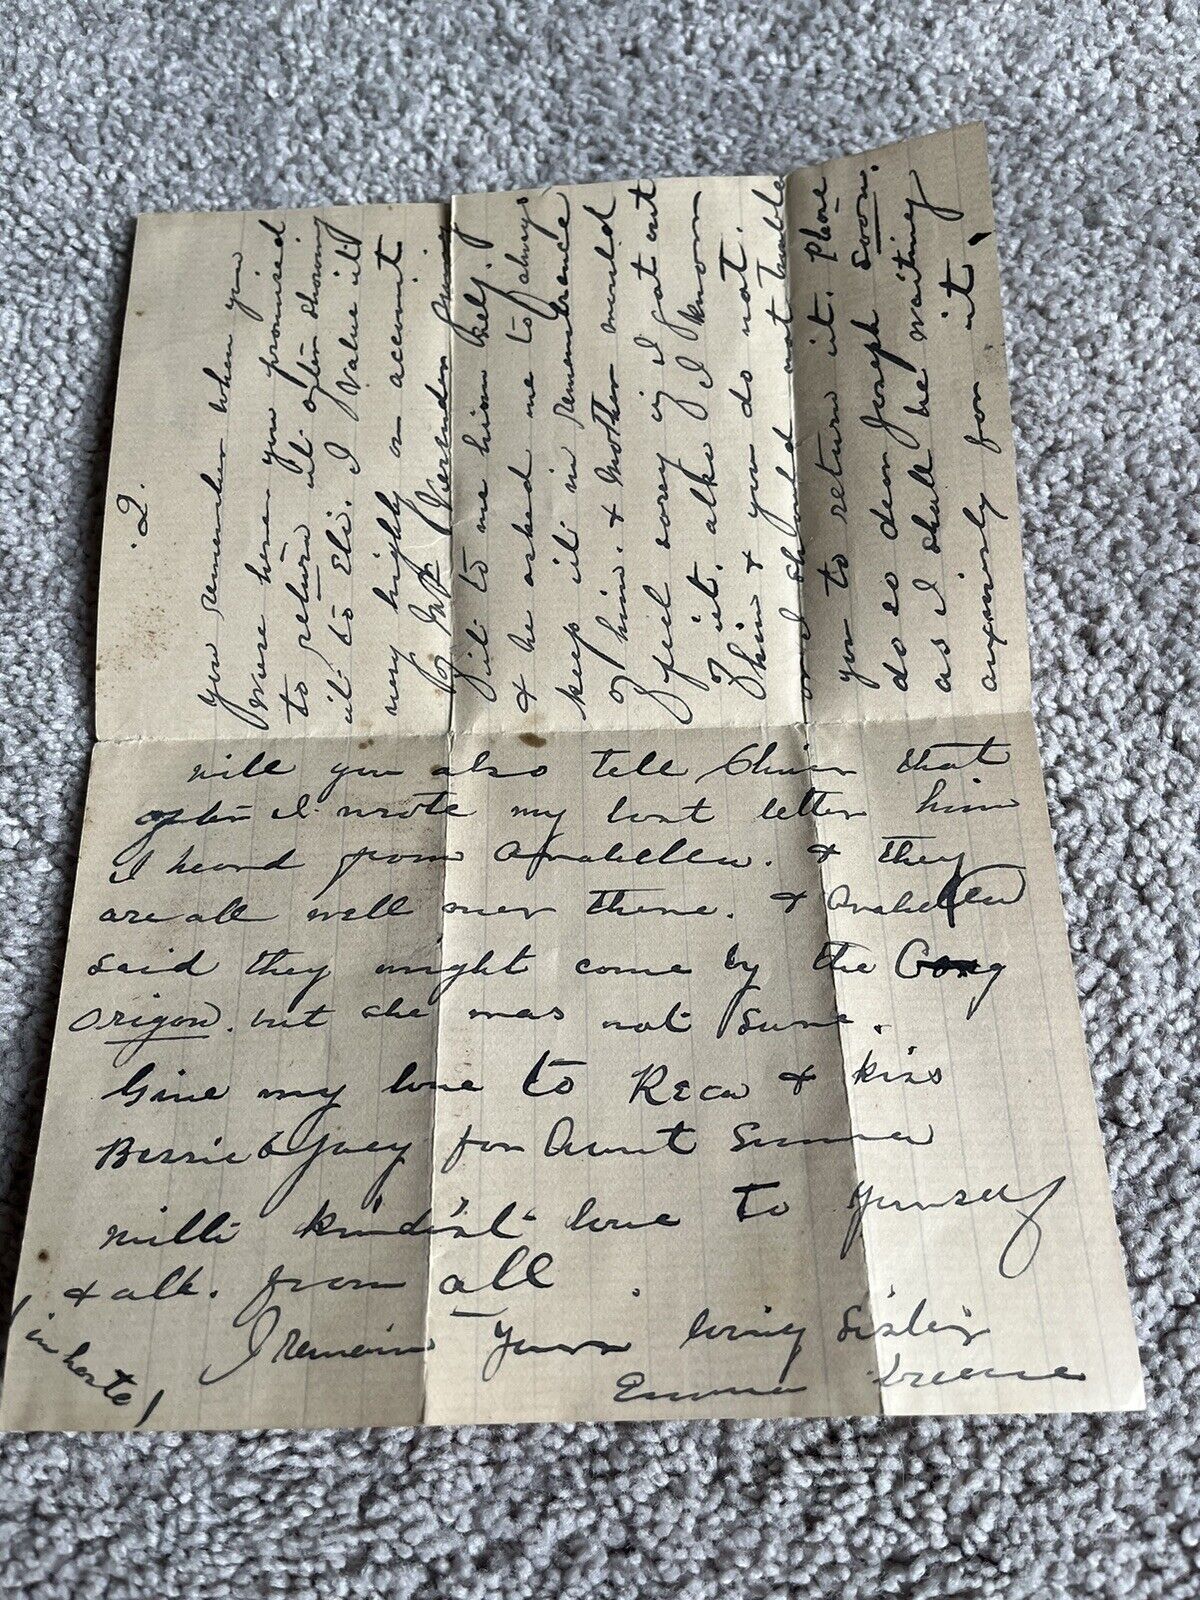 2.
you remember when you
were here you promised
to return it after showing
it to Eli. I value it
very highly on account
of Mr
it to me him self.
& he asked me to always
keep it in remembrance
of him. & Mother would
feel sorry if I got out
of it. altho I know
him & you do not.
or I should not trouble
you to return it. Please
do so dear Joseph soon.
as I shall be waiting
anxiously for it.
will you also tell that
after I wrote my last letter him
I heard from Arabella. & they
are all well over there. & Arabella
said they might come by the
Origon. but she was not sure.
Give my love to Reca & kiss
Bessie & Joey for Aunt Emma
with kindest love to yourself
& all. from all.
I remain yours loving Sister
Emma Greene
in haste!